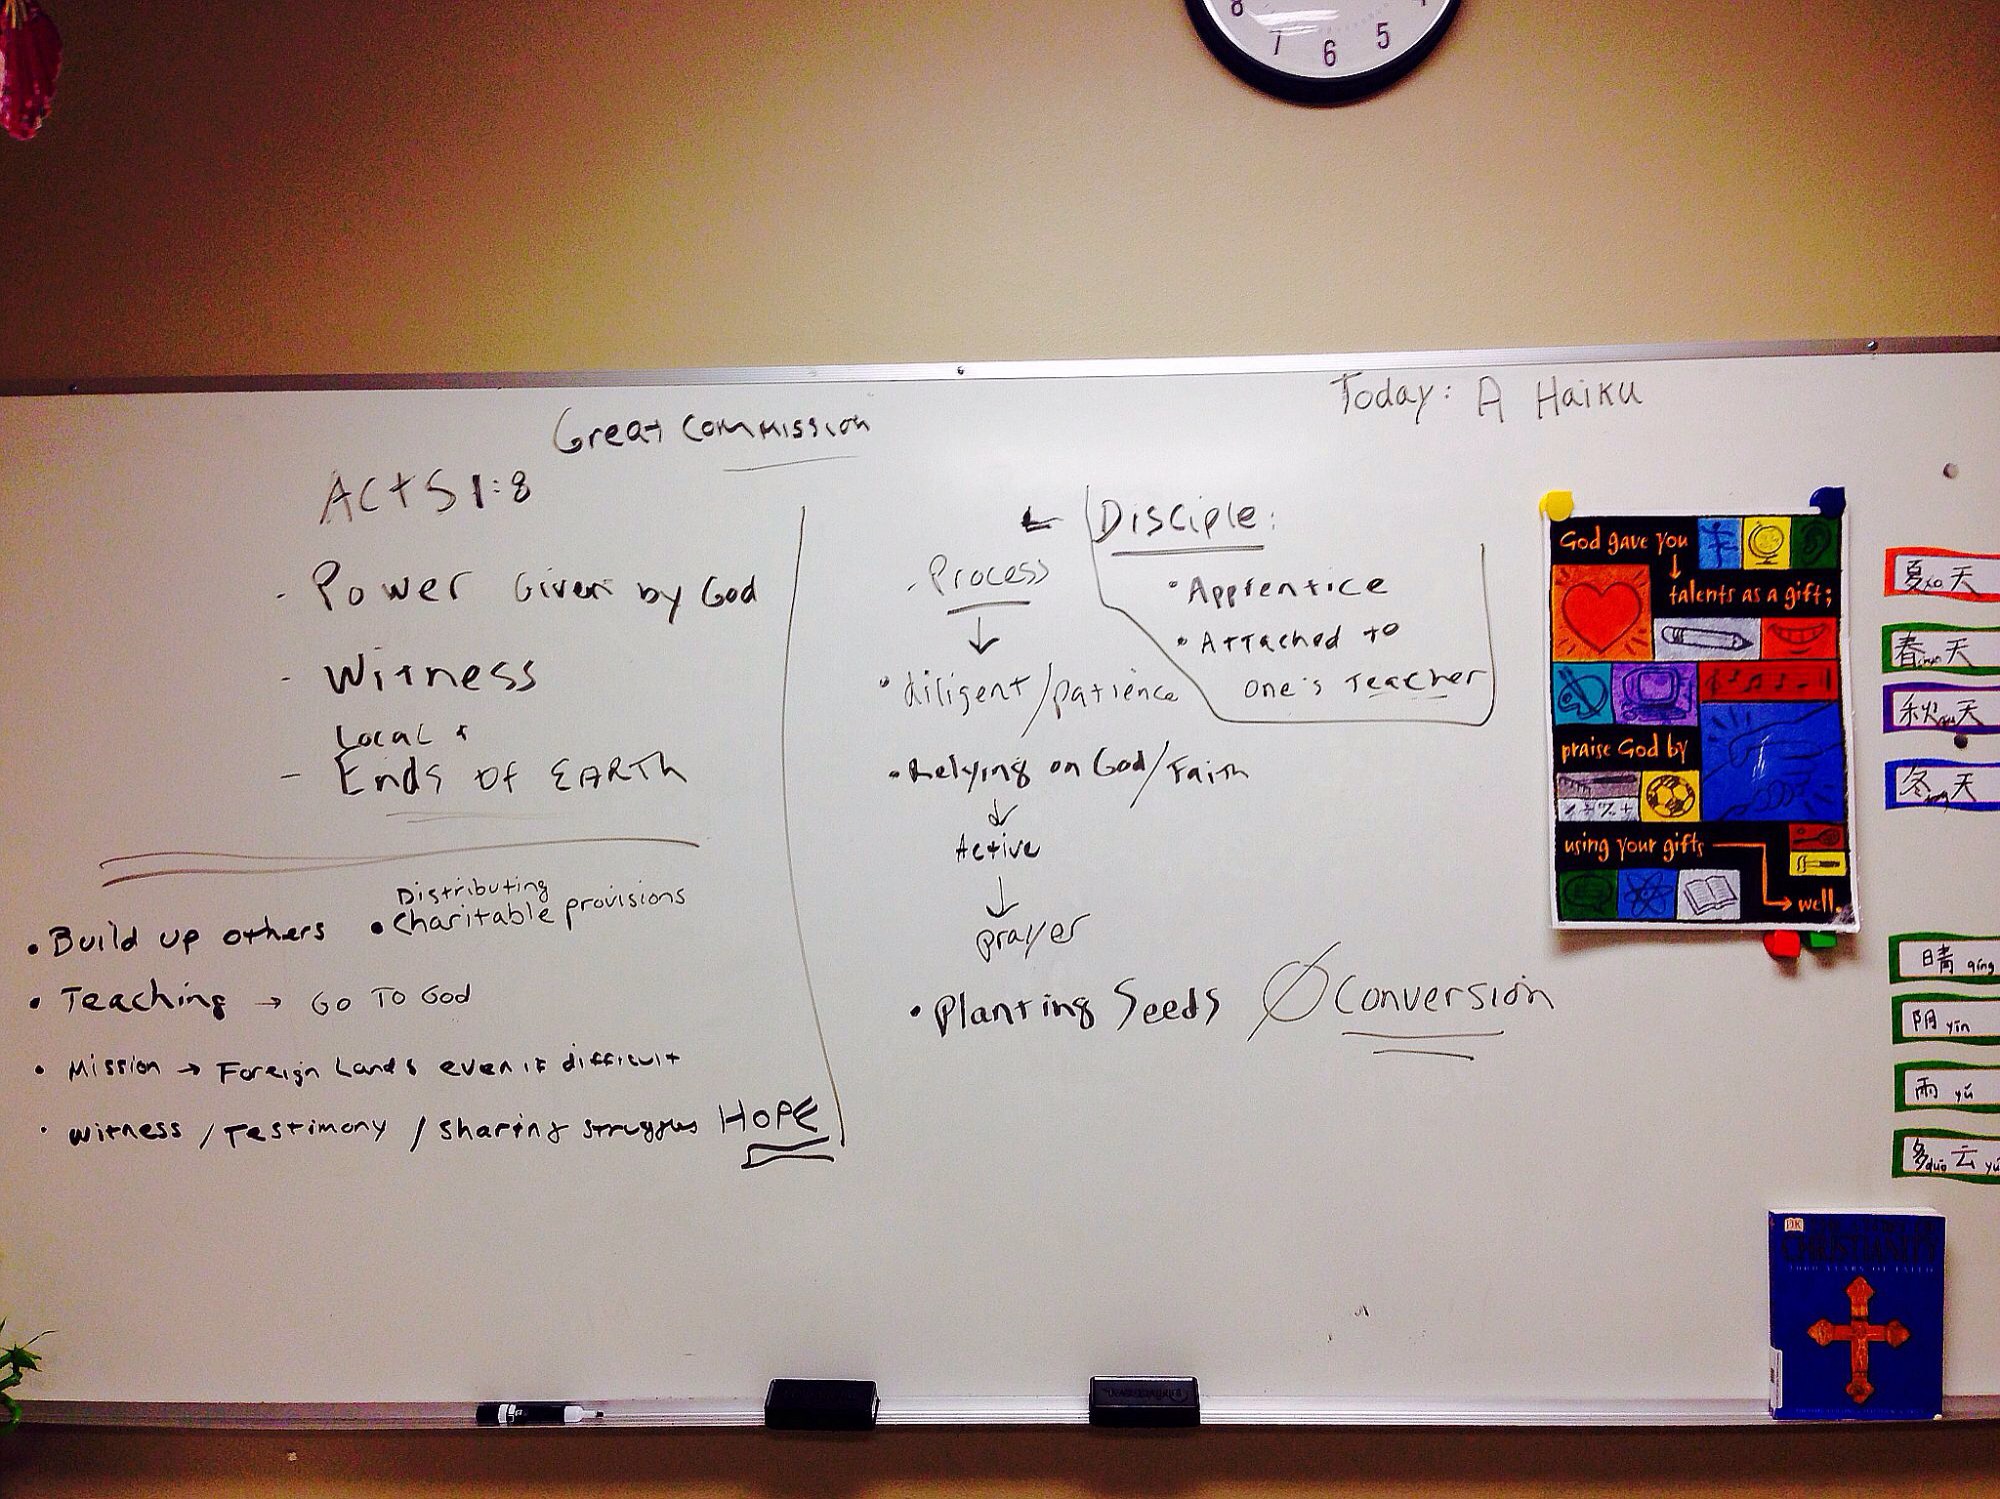 8 7 6 5
Today: A Haiku
Great Commission
Acts 1:8
- Power Given by God
- Witness
Local +
- Ends of Earth
• Build up others
Distributing
• Charitable provisions
• Teaching → Go To God
• Mission → Foreign Lands even if difficult
• Witness / Testimony / Sharing struggles HOPE
Disciple:
• Apprentice
• Attached to
one's Teacher
- Process
↓
• diligent/patience
• Relying on God/Faith
↓
Active
↓
prayer
• Planting Seeds Ø Conversion
God gave you
talents as a gift;
praise God by
using your gifts
well.
夏 天
春 天
秋 天
冬 天
晴 qíng
阴 yīn
雨 yǔ
多 duō 云 yú
DK
CHRISTIANITY